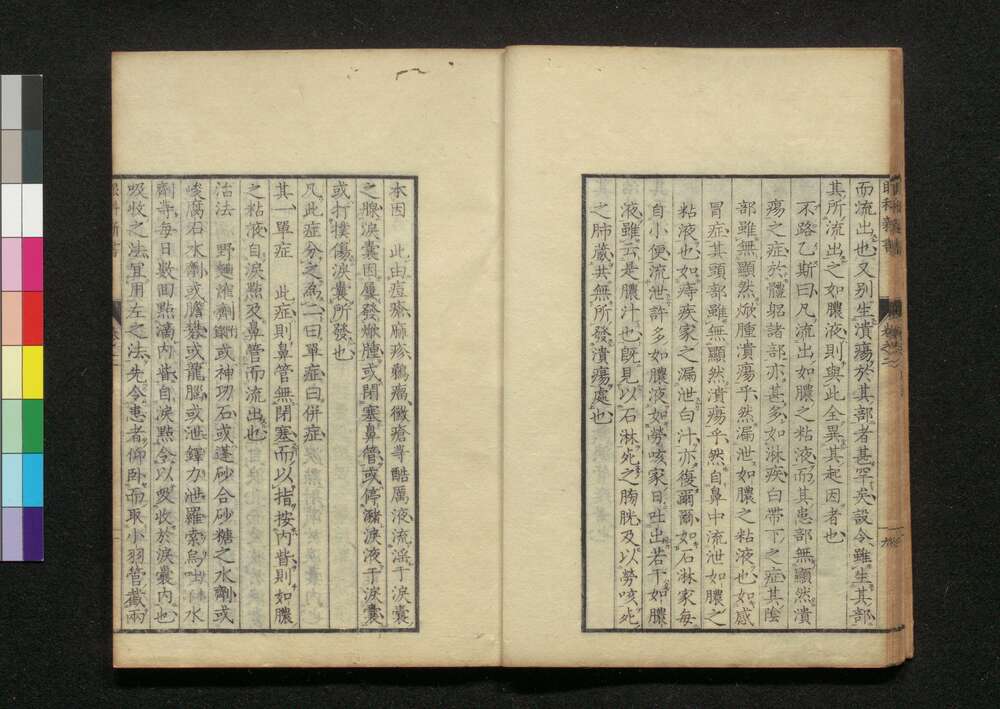 眼科新書
而流出也又别生潰瘍於其部者甚罕矣設令雖生其部
其所流出之如膿液則與此全異其起因者也
不路乙斯曰凡流出如膿之粘液而其患部無顯然潰
瘍之症於體躬諸部亦甚多如淋疾白帶下之症其陰
部雖無顯然焮腫潰瘍乎然漏泄如膿之粘液也如感
冒症其頭部雖無顯然潰瘍乎然自鼻中流泄如膿之
粘液也如痔疾家之漏泄白汁亦復爾爾如石淋家每
自小便流泄許多如膿液如勞咳家日吐出若干如膿
液雖云是膿汁也既見以石淋死之胸胱及以勞咳死
之肺藏共無所發潰瘍處也
本因 此由痘瘡麻疹鶴瘤黴瘡等酷厲液流淫于淚囊
之腺淚囊因屢發焮腫或閉塞鼻管或停瀦淚液于淚囊
或打撲傷淚囊所發也
凡此症分之爲二曰單症曰併症
其一單症 此症則鼻管無閉塞而以指按內眥則如膿
之粘液自淚點及鼻管而流出也
治法 野麵洎劑或神功石或蓬砂合砂糖之水劑或
峻腐石水劑或膽礬或龍腦或泄鐸力泄羅索烏 水
劑等每日數回點滴內眥自淚點令以吸收於淚囊內也
吸收之法宜用左之法先令患者仰臥而取小羽管截兩
眼科新書